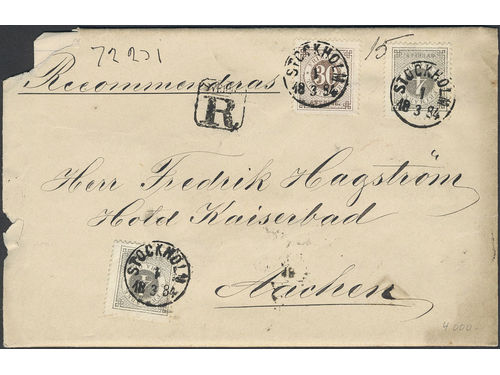 72231
15
Recommenderas
R
STOCKHOLM
1
18 3 84
STOCKHOLM
1
18 3 84
Herr Fredrik Hagström
Hotel Kaiserbad
Aachen
STOCKHOLM
1
18 3 84
4000.-